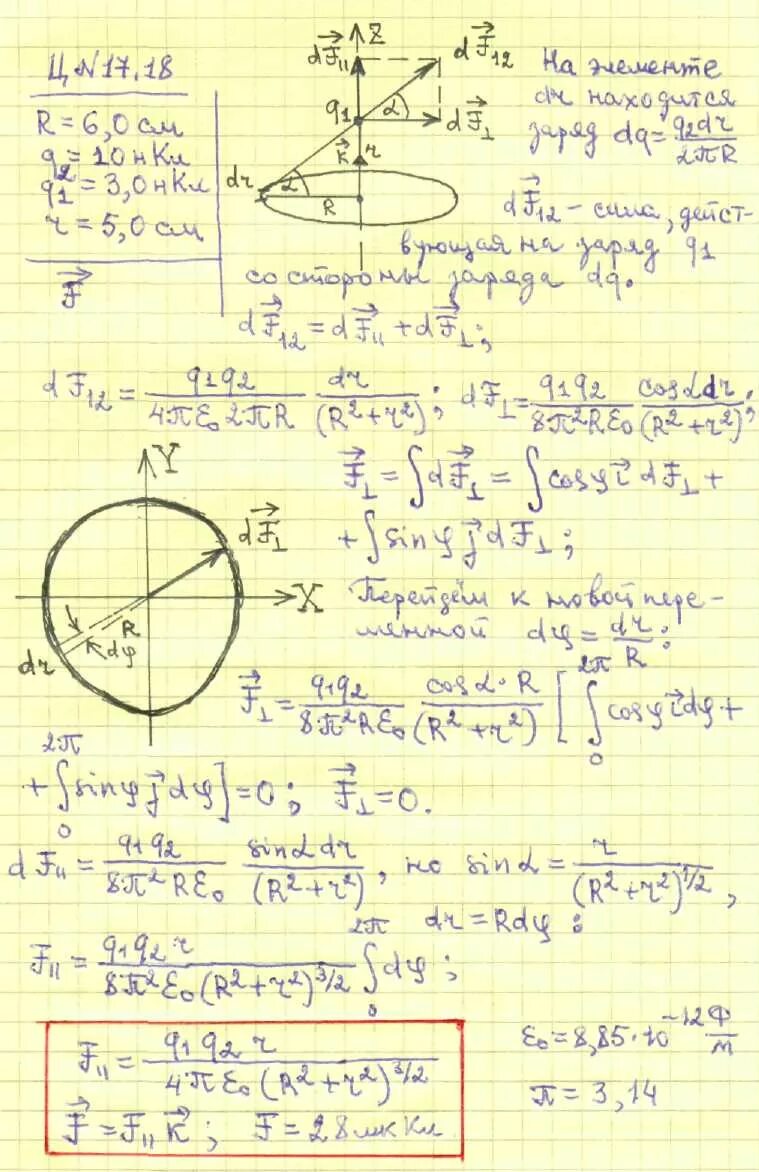 Ц №17.18
R = 6,0 см
q2 = 10 нКл
q1 = 3,0 нКл
r = 5,0 см
F⃗
dF⃗||
Z
dF⃗12
q1
α
dF⃗⊥
k⃗
r
dr
α
R
На элементе
dr находится
заряд dq = q2dr/2πR
dF⃗12 – сила, дейст-
вующая на заряд q1
со стороны заряда dq.
dF⃗12 = dF⃗|| + dF⃗⊥;
dF12 = q1q2/4πε0 2πR dr/(R²+r²); dF⊥ = q1q2/8π²Rε0 cosα dr/(R²+r²);
Y
dF⃗⊥
X
R
dφ
dr
F⃗⊥ = ∫dF⃗⊥ = ∫cosφ i⃗ dF⊥ +
+ ∫sinφ j⃗ dF⊥;
Перейдём к новой пере-
менной dφ = dr/R:
F⃗⊥ = q1q2/8π²Rε0 cosα·R/(R²+r²) [ ∫₀^2π cosφ i⃗ dφ +
+ ∫₀^2π sinφ j⃗ dφ] = 0; F⃗⊥ = 0.
dF|| = q1q2/8π²Rε0 sinα dr/(R²+r²), но sinα = r/(R²+r²)^1/2,
dr = Rdφ:
F|| = q1q2 r/8π²ε0(R²+r²)^3/2 ∫₀^2π dφ;
F|| = q1q2 r/4πε0(R²+r²)^3/2
F⃗ = F|| k⃗; F = 28 мкКл
ε0 = 8,85·10^-12 Ф/м
π = 3,14